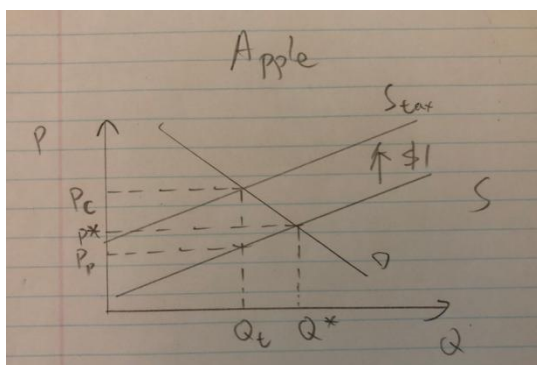 Apple
S tax
P
↑ $1
Pc
S
P*
Pp
D
Qt
Q*
Q